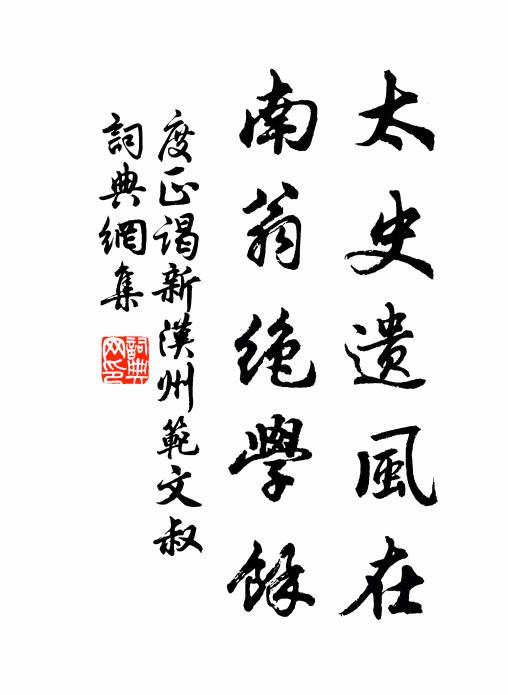 太史遺風在
南翁絶學餘
度正謁新漢州範文叔
詞典網集
詞典網印